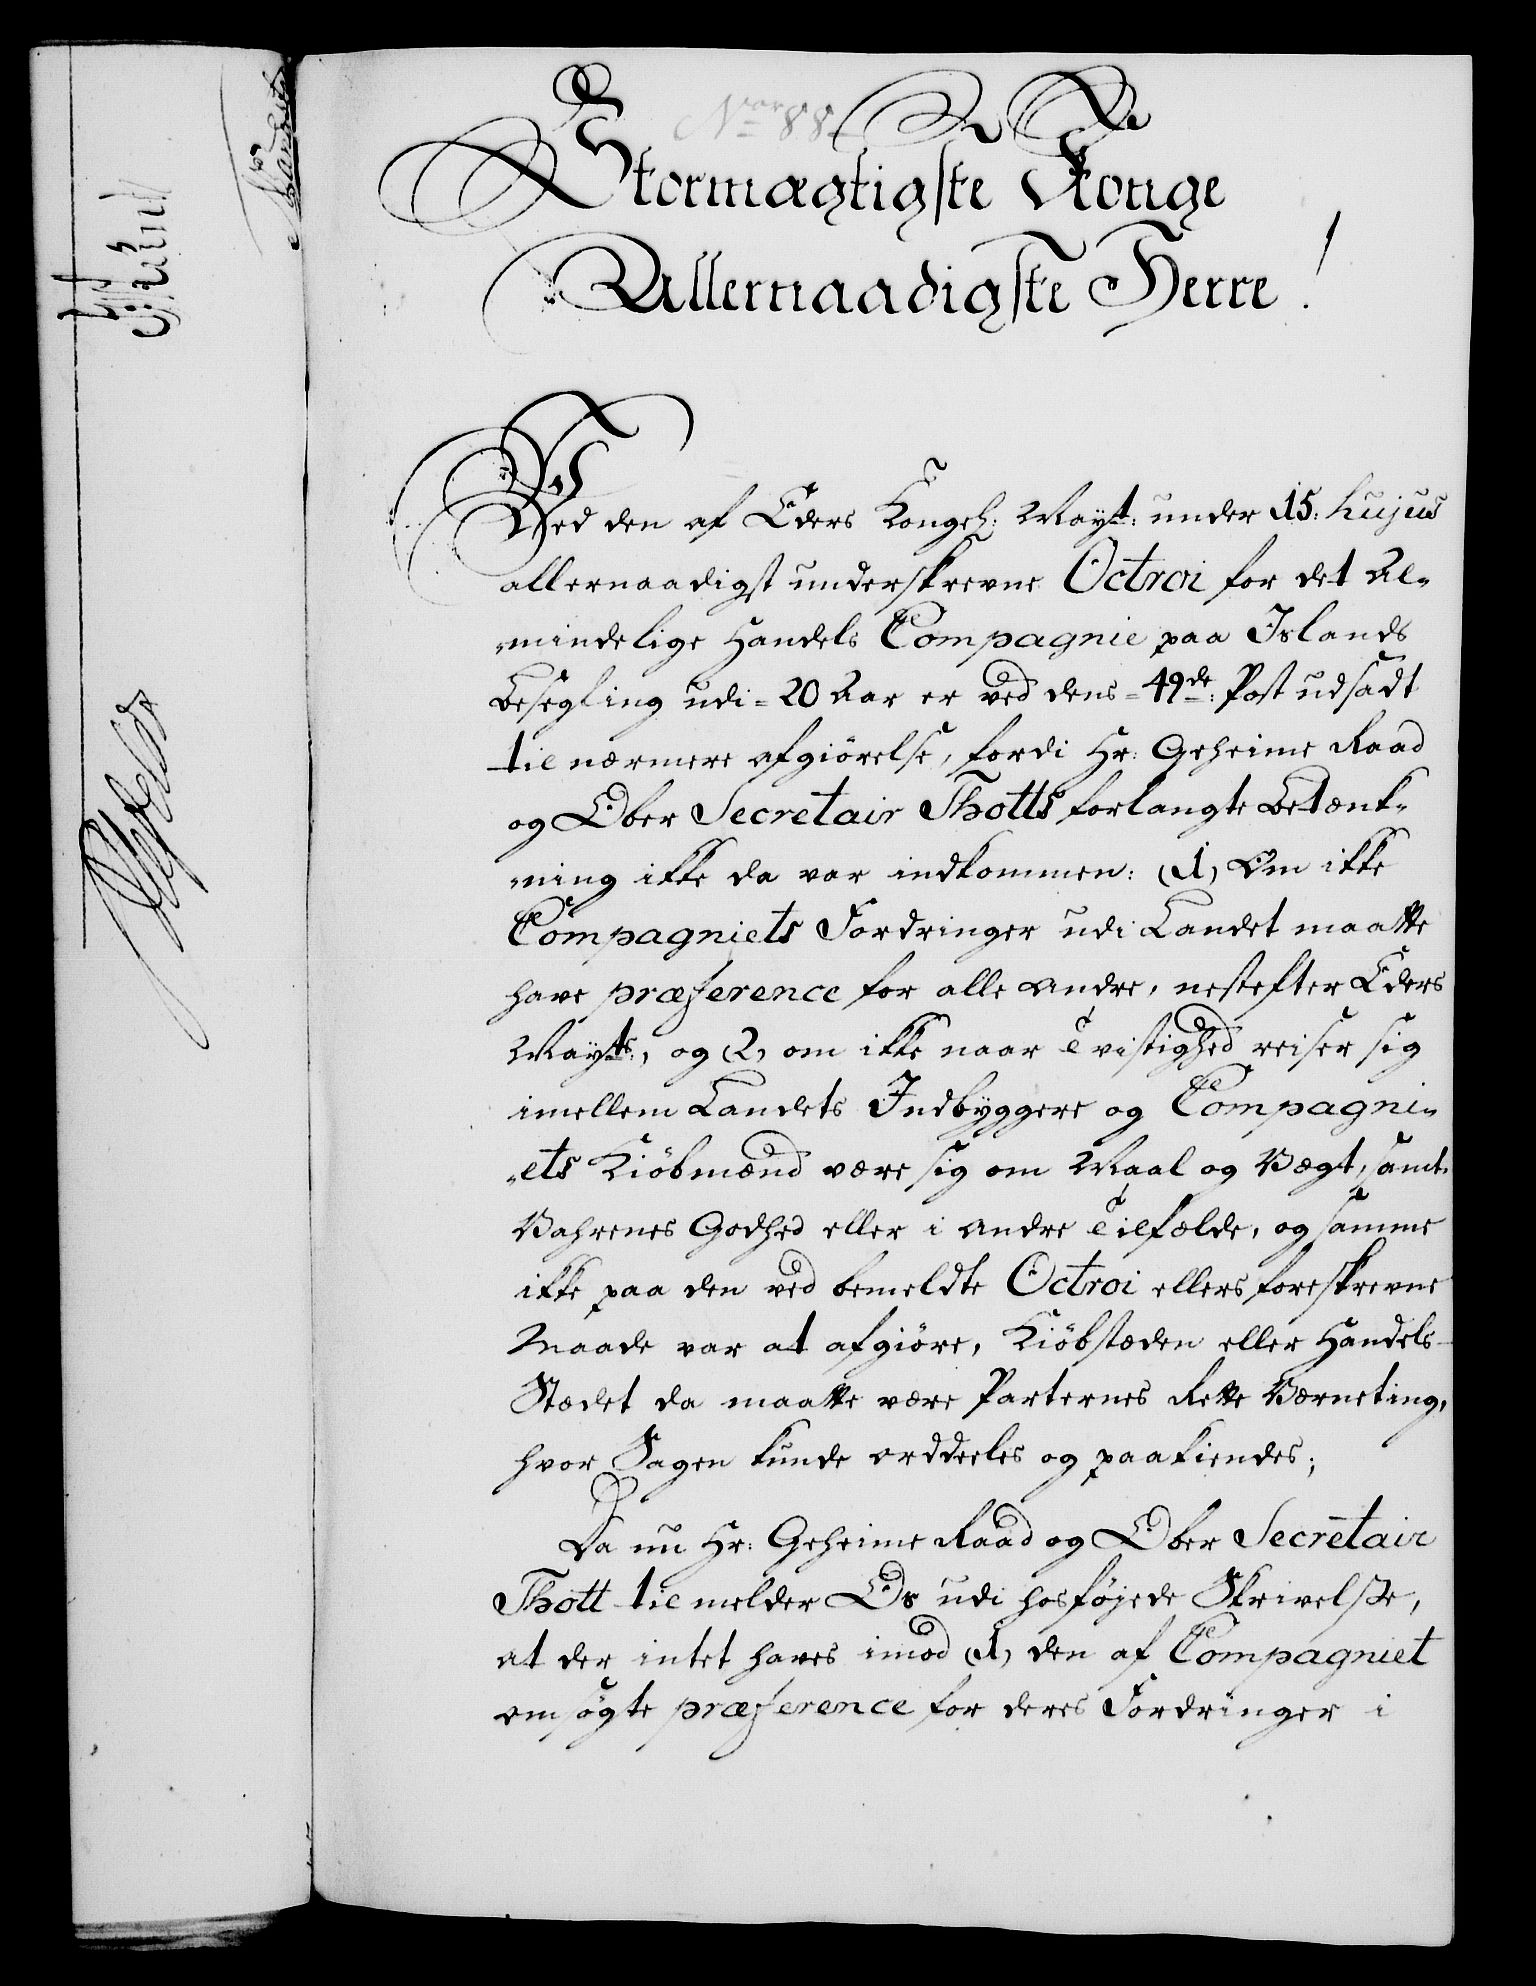 Nor 88
Stormægtigste Konge
Allernaadigste Herre!
Ved den af Eders Kongel: Mayt: under 15: hujus
allernaadigst underskrevne Octroi for det Al-
mindelige Handels Compagnie paa Islands
Besegling udi = 20 Aar er ved dens = 49de: Post udsadt
til nærmere afgiörelse, fordi Hr: Geheime Raad
og Ober Secretair Thotts forlangte Betænk-
ning ikke da var indkommen: (1, Om ikke
Compagniets Fordringer udi Landet maatte
have præference for alle andre, nestefter Eders
Mayts:, og (2, om ikke naar Tvistighed reiser sig
imellem Landets Indbyggere og Compagni-
ets Kiöbmænd være sig om Maal og Vægt, samt
Vahrenes Godhed eller i andre Tilfælde, og samme
ikke paa den ved bemeldte Octroi ellers foreskrevne
Maade var at afgiöre, Kiöbstæden eller Handels-
Stædet da maatte være Parternes Rette Værneting,
hvor Sagen kunde orddeeles og paakiendes;
Da nu Hr: Geheime Raad og Ober Secretair
Thott til melder Os udi hosföjede Skrivelse,
at der intet haves imod (1, den af Compagniet
ansögte præference for deres Fordringer i